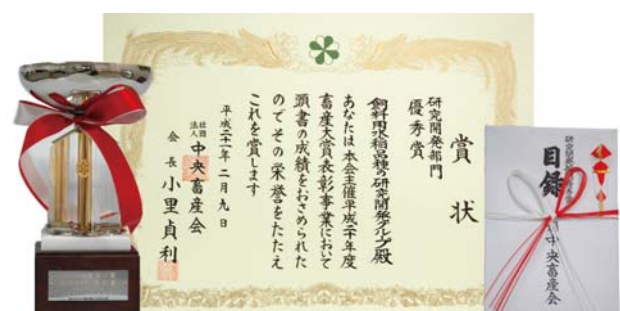 賞状
研究開発部門
優秀賞
飼料用水稲品種の研究開発グループ殿
あなたは本会主催平成二十年度
畜産大賞表彰事業において
頭書の成績をおさめられた
のでその栄誉をたたえ
これを賞します
平成二十一年二月九日
社団法人 中央畜産会
会長 小里貞利
目録
中央畜産会